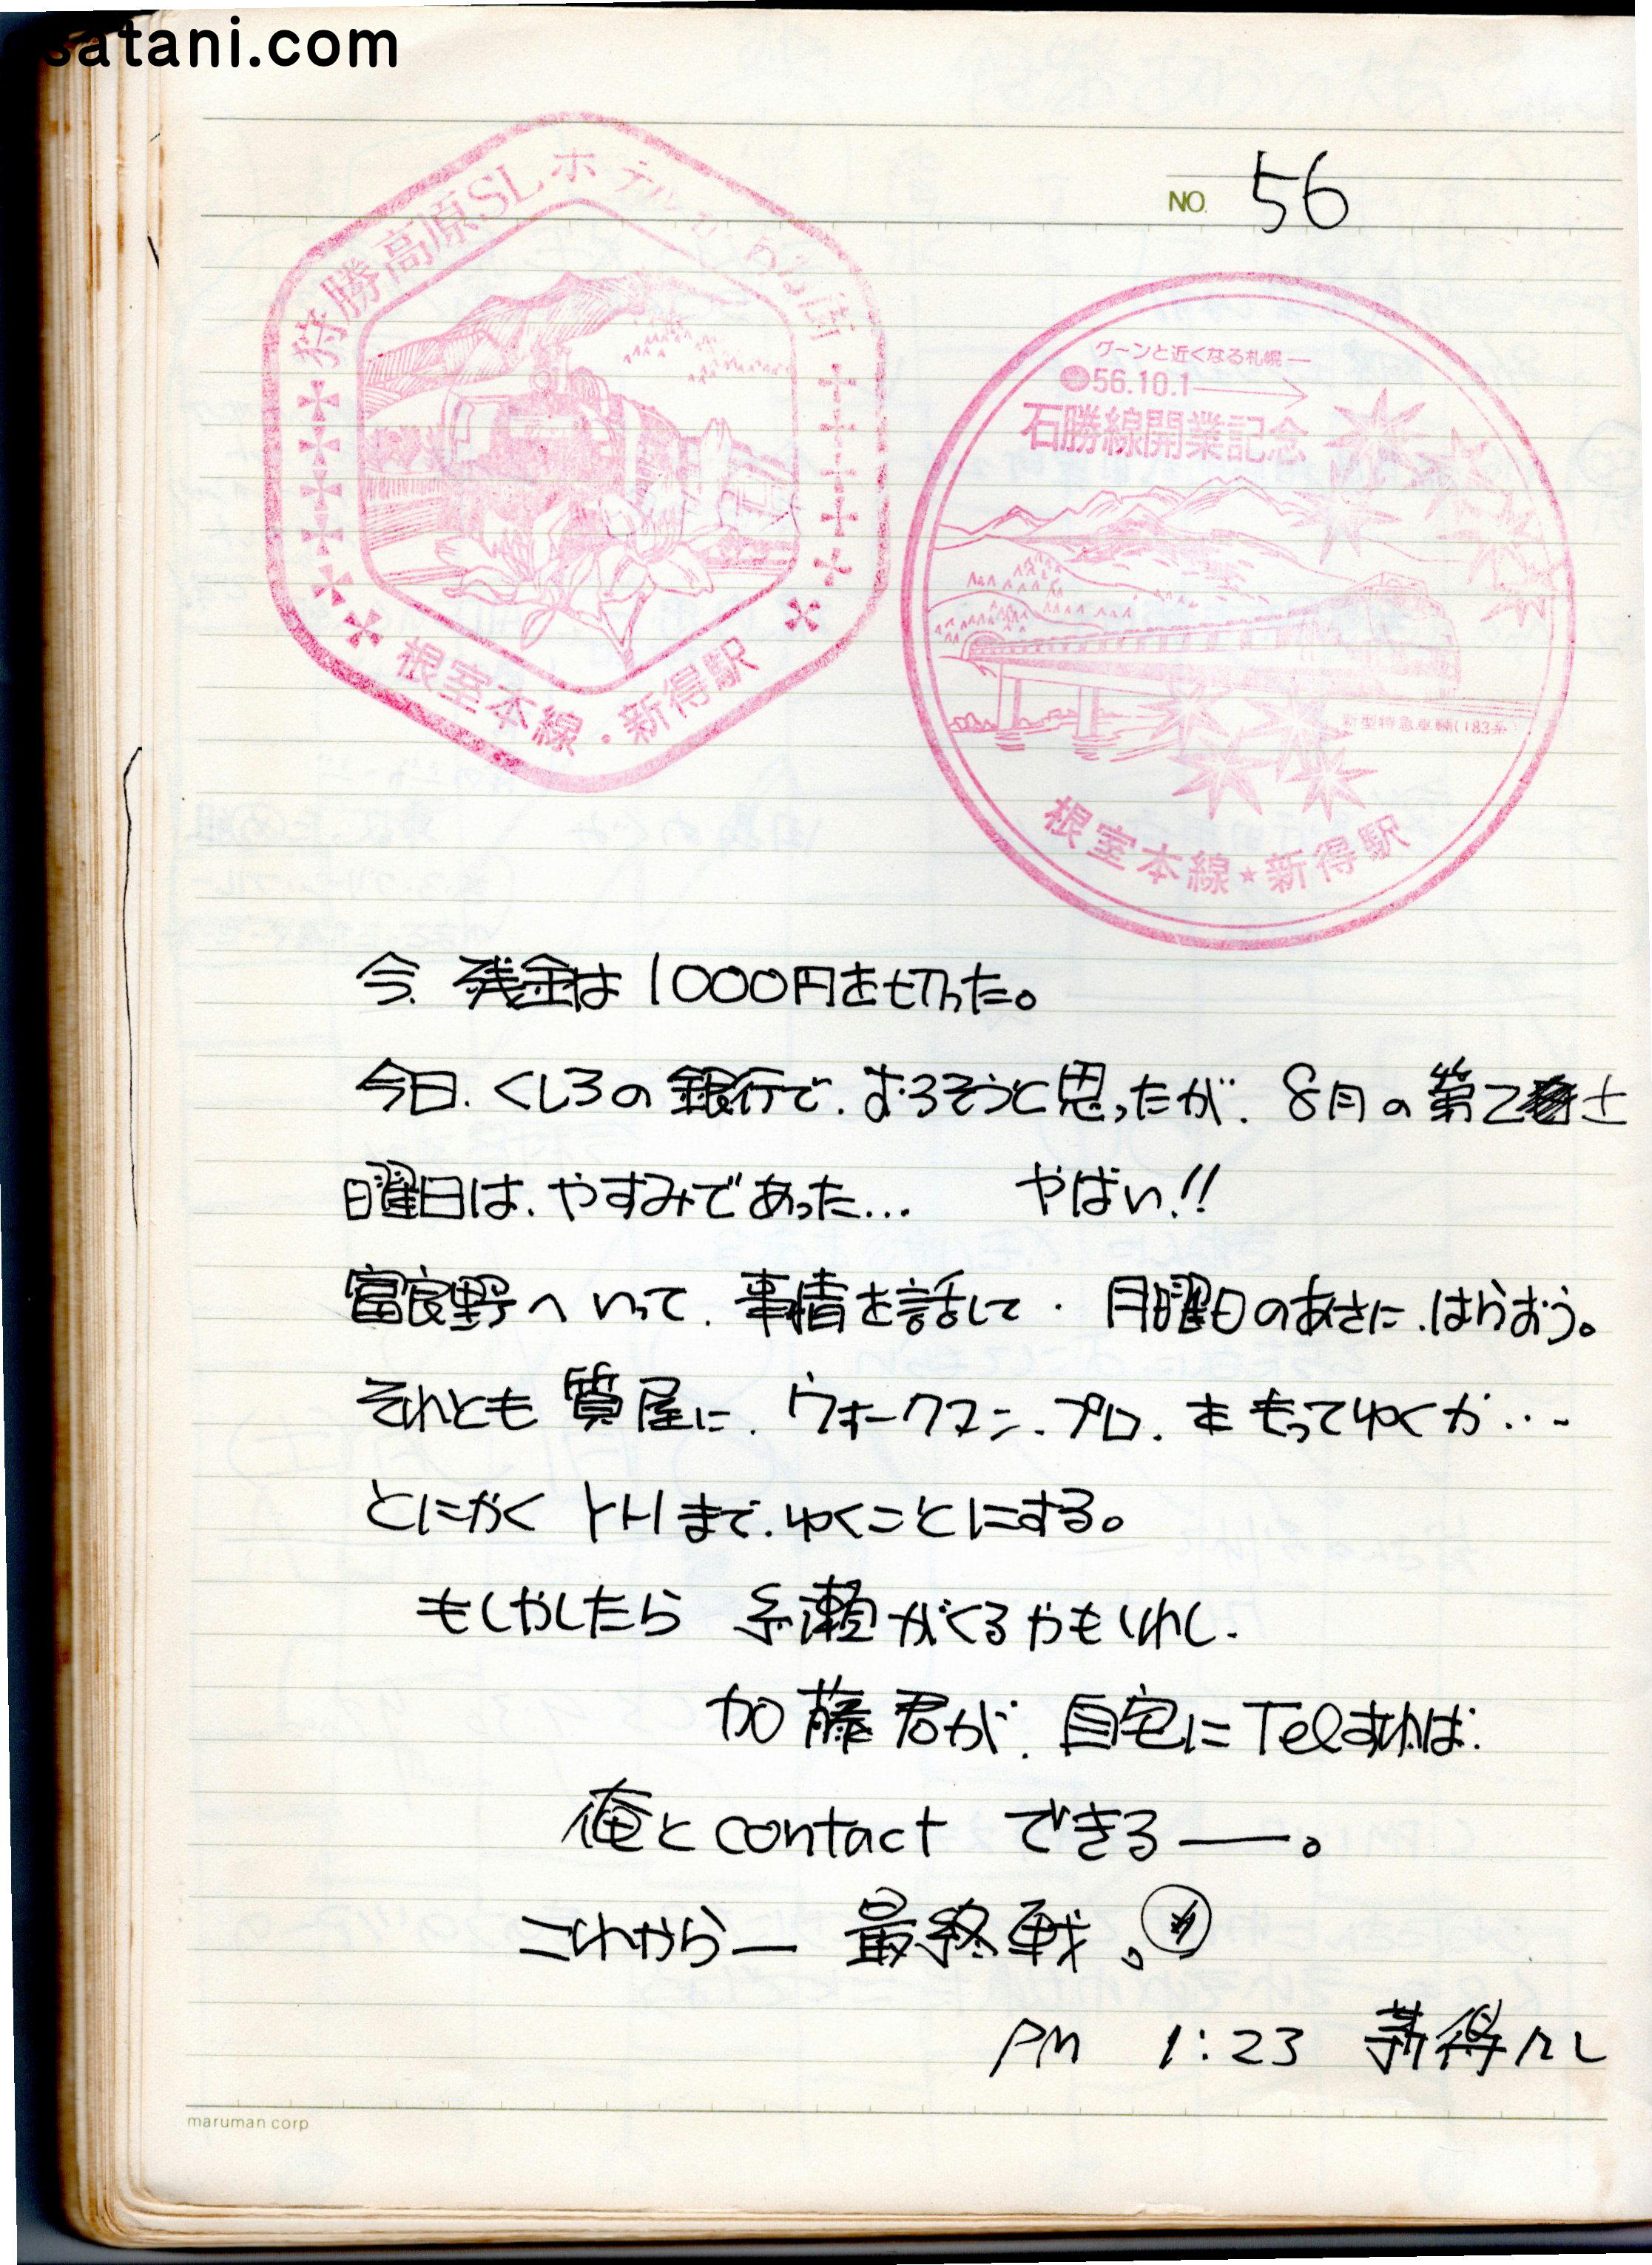 satani.com
NO. 56
狩勝高原SLホテルのある街
根室本線・新得駅
グーンと近くなる札幌―
●56.10.1
石勝線開業記念
新型特急車輌(183系)
根室本線★新得駅
今、残金は1000円を切った。
今日、くしろの銀行で、おろそうと思ったが、8月の第2土
曜日は、やすみであった… やばい!!
富良野へいって、事情を話して、月曜日のあさに、はらおう。
それとも質屋に、ウォークマン、プロ、をもってゆくか…
とにかくYHまで、ゆくことにする。
もしかしたら 糸瀬がくるかもしれし、
加藤君が、自宅にTelすれば、
俺とcontact できる――。
これから― 最終戦。
PM 1:23 新得にし
maruman corp